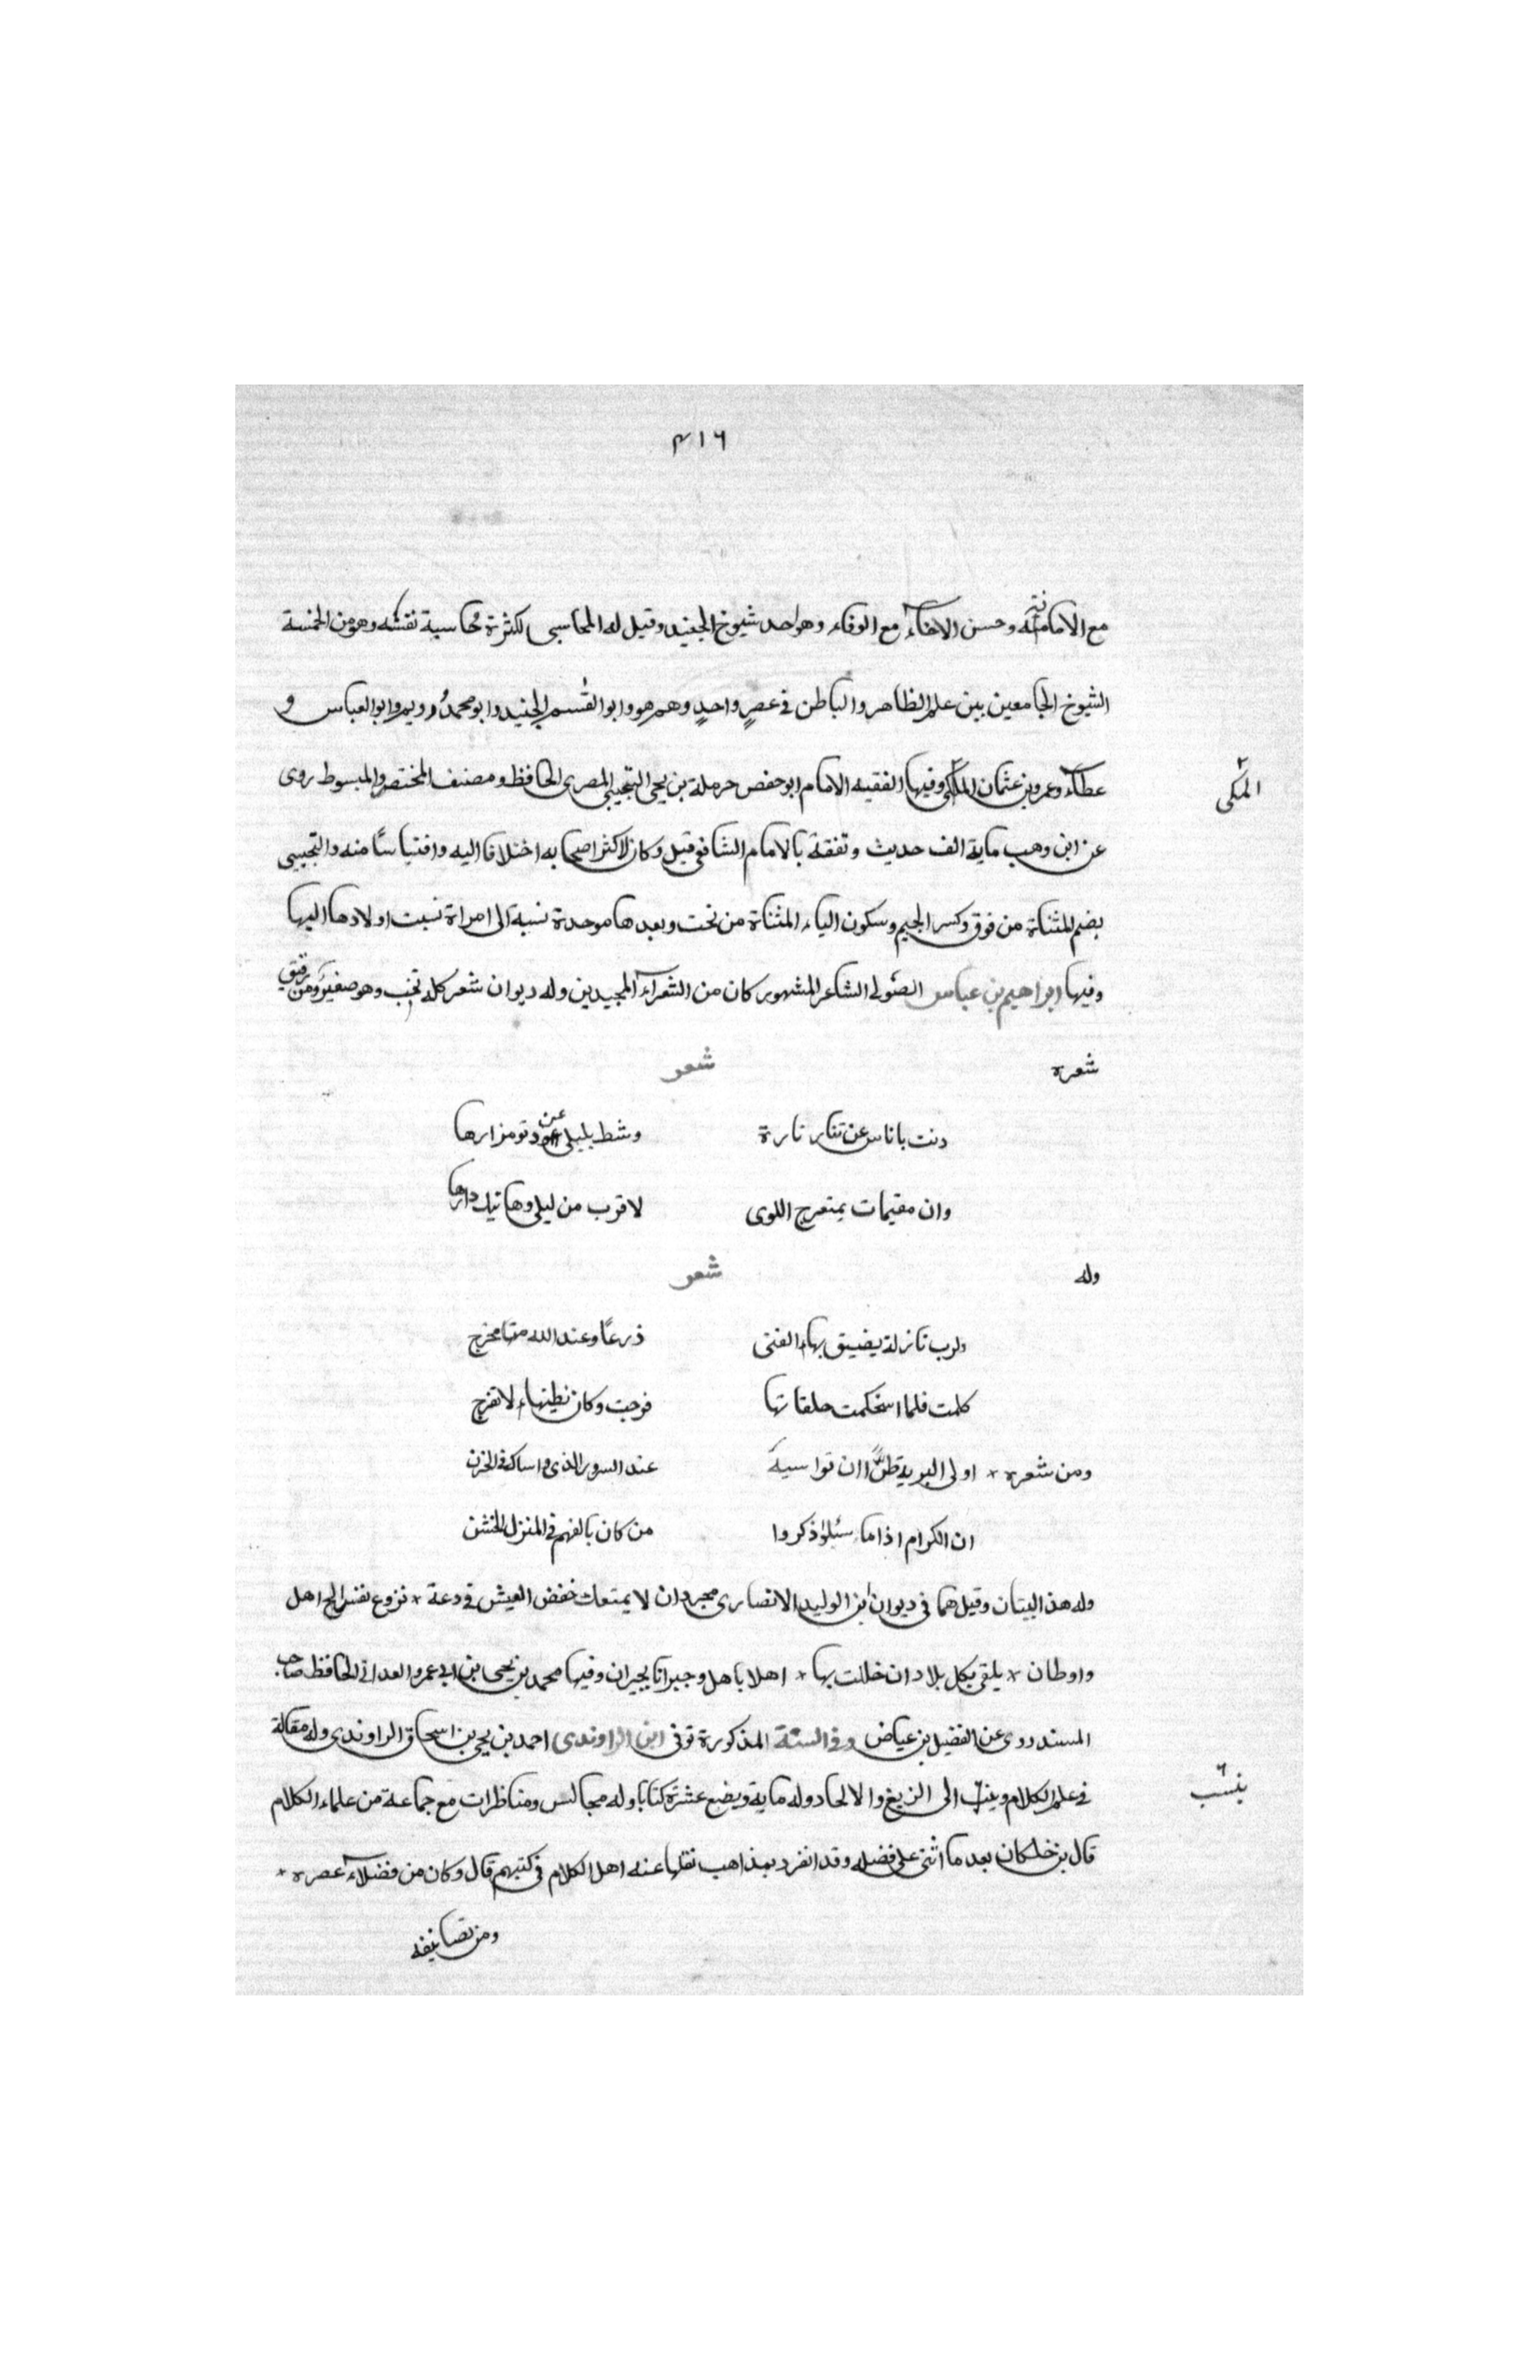 ٤١٦
مع الامانة وحسن الاخاء مع الوفاء وهو احد شيوخ الجنيد وقيل له المحاسبى لكثرة محاسبة نفسه وهو من الخمسة
الشيوخ الجامعين بين علم الظاهر والباطن فى عصرٍ واحدٍ وهم هو وابو القسم الجنيد وابو محمد رويم وابو العباس و
عطاء وعمرو بن عثمان المكى وفيها الفقيه الامام ابو حفص حرملة بن يحى التجيبى المصرى الحافظ ومصنف المختصر والمبسوط روى
المكى
عن ابن وهب ماية الف حديث وتفقه بالامام الشافعى قيل وكان لاكثر اصحابه اختلافا اليه واقتباسًا منه والتجيبى
بضم المثناة من فوق وكسر الجيم وسكون الياء المثناة من تحت وبعدها موحدة نسبة الى امراة نسبت اولادها اليها
وفيها ابراهيم بن عباس الصولى الشاعر المشهور كان من الشعراء المجيدين وله ديوان شعر كله نخب وهو صغير ومن رقيق
شعره شعر
دنت باناس عن تناىء نارة وشط بليلى عن دنو مزارها
وان مقيمات بمتعرج اللوى لاقرب من ليلى وهاتيك دارها
وله شعر
ولرب نازلة يضيق بهاء الفتى ذرعًا وعند الله منها مخرج
كلمت فلما استحكمت حلقاتها فرجت وكان نظيتهاء لا تفرج
ومن شعره * اولى البرية طرًّا ان تواسيه عند السرور الذى واساك فى الحزن
ان الكرام اذا ما سئلوا ذكروا من كان بالفهم فى المنزل الخشن
وله هذ البيتان وقيل هما فى ديوان ابن الوليد الانصارى مجردان لا يمتعك خفض العيش فى دعة * نزوع نفس الى اهل
واوطان * يلقى بكل بلاد ان خللت بها * اهلا باهل وجيرانا بجيران وفيها محمد بن يحيى بن ابى عمرو العدانى الحافظ صاحب
المسند روى عن الفضيل بن عياض وفى السنة المذكورة توفى ابن الراوندى احمد بن يحيى بن اسحاق الراوندى وله مقالة
فى علم الكلام وينسب الى الزيغ والالحاد وله ماية وبضع عشرة كتابا وله مجالس ومناظرات مع جماعة من علماء الكلام
ينسب
قال بن خلكان بعد ما اثنى على فضله وقد انفرد بمذاهب نقلها عنه اهل الكلام فى كتبهم قال وكان من فضلاء عصره *
ومن تصانيفه